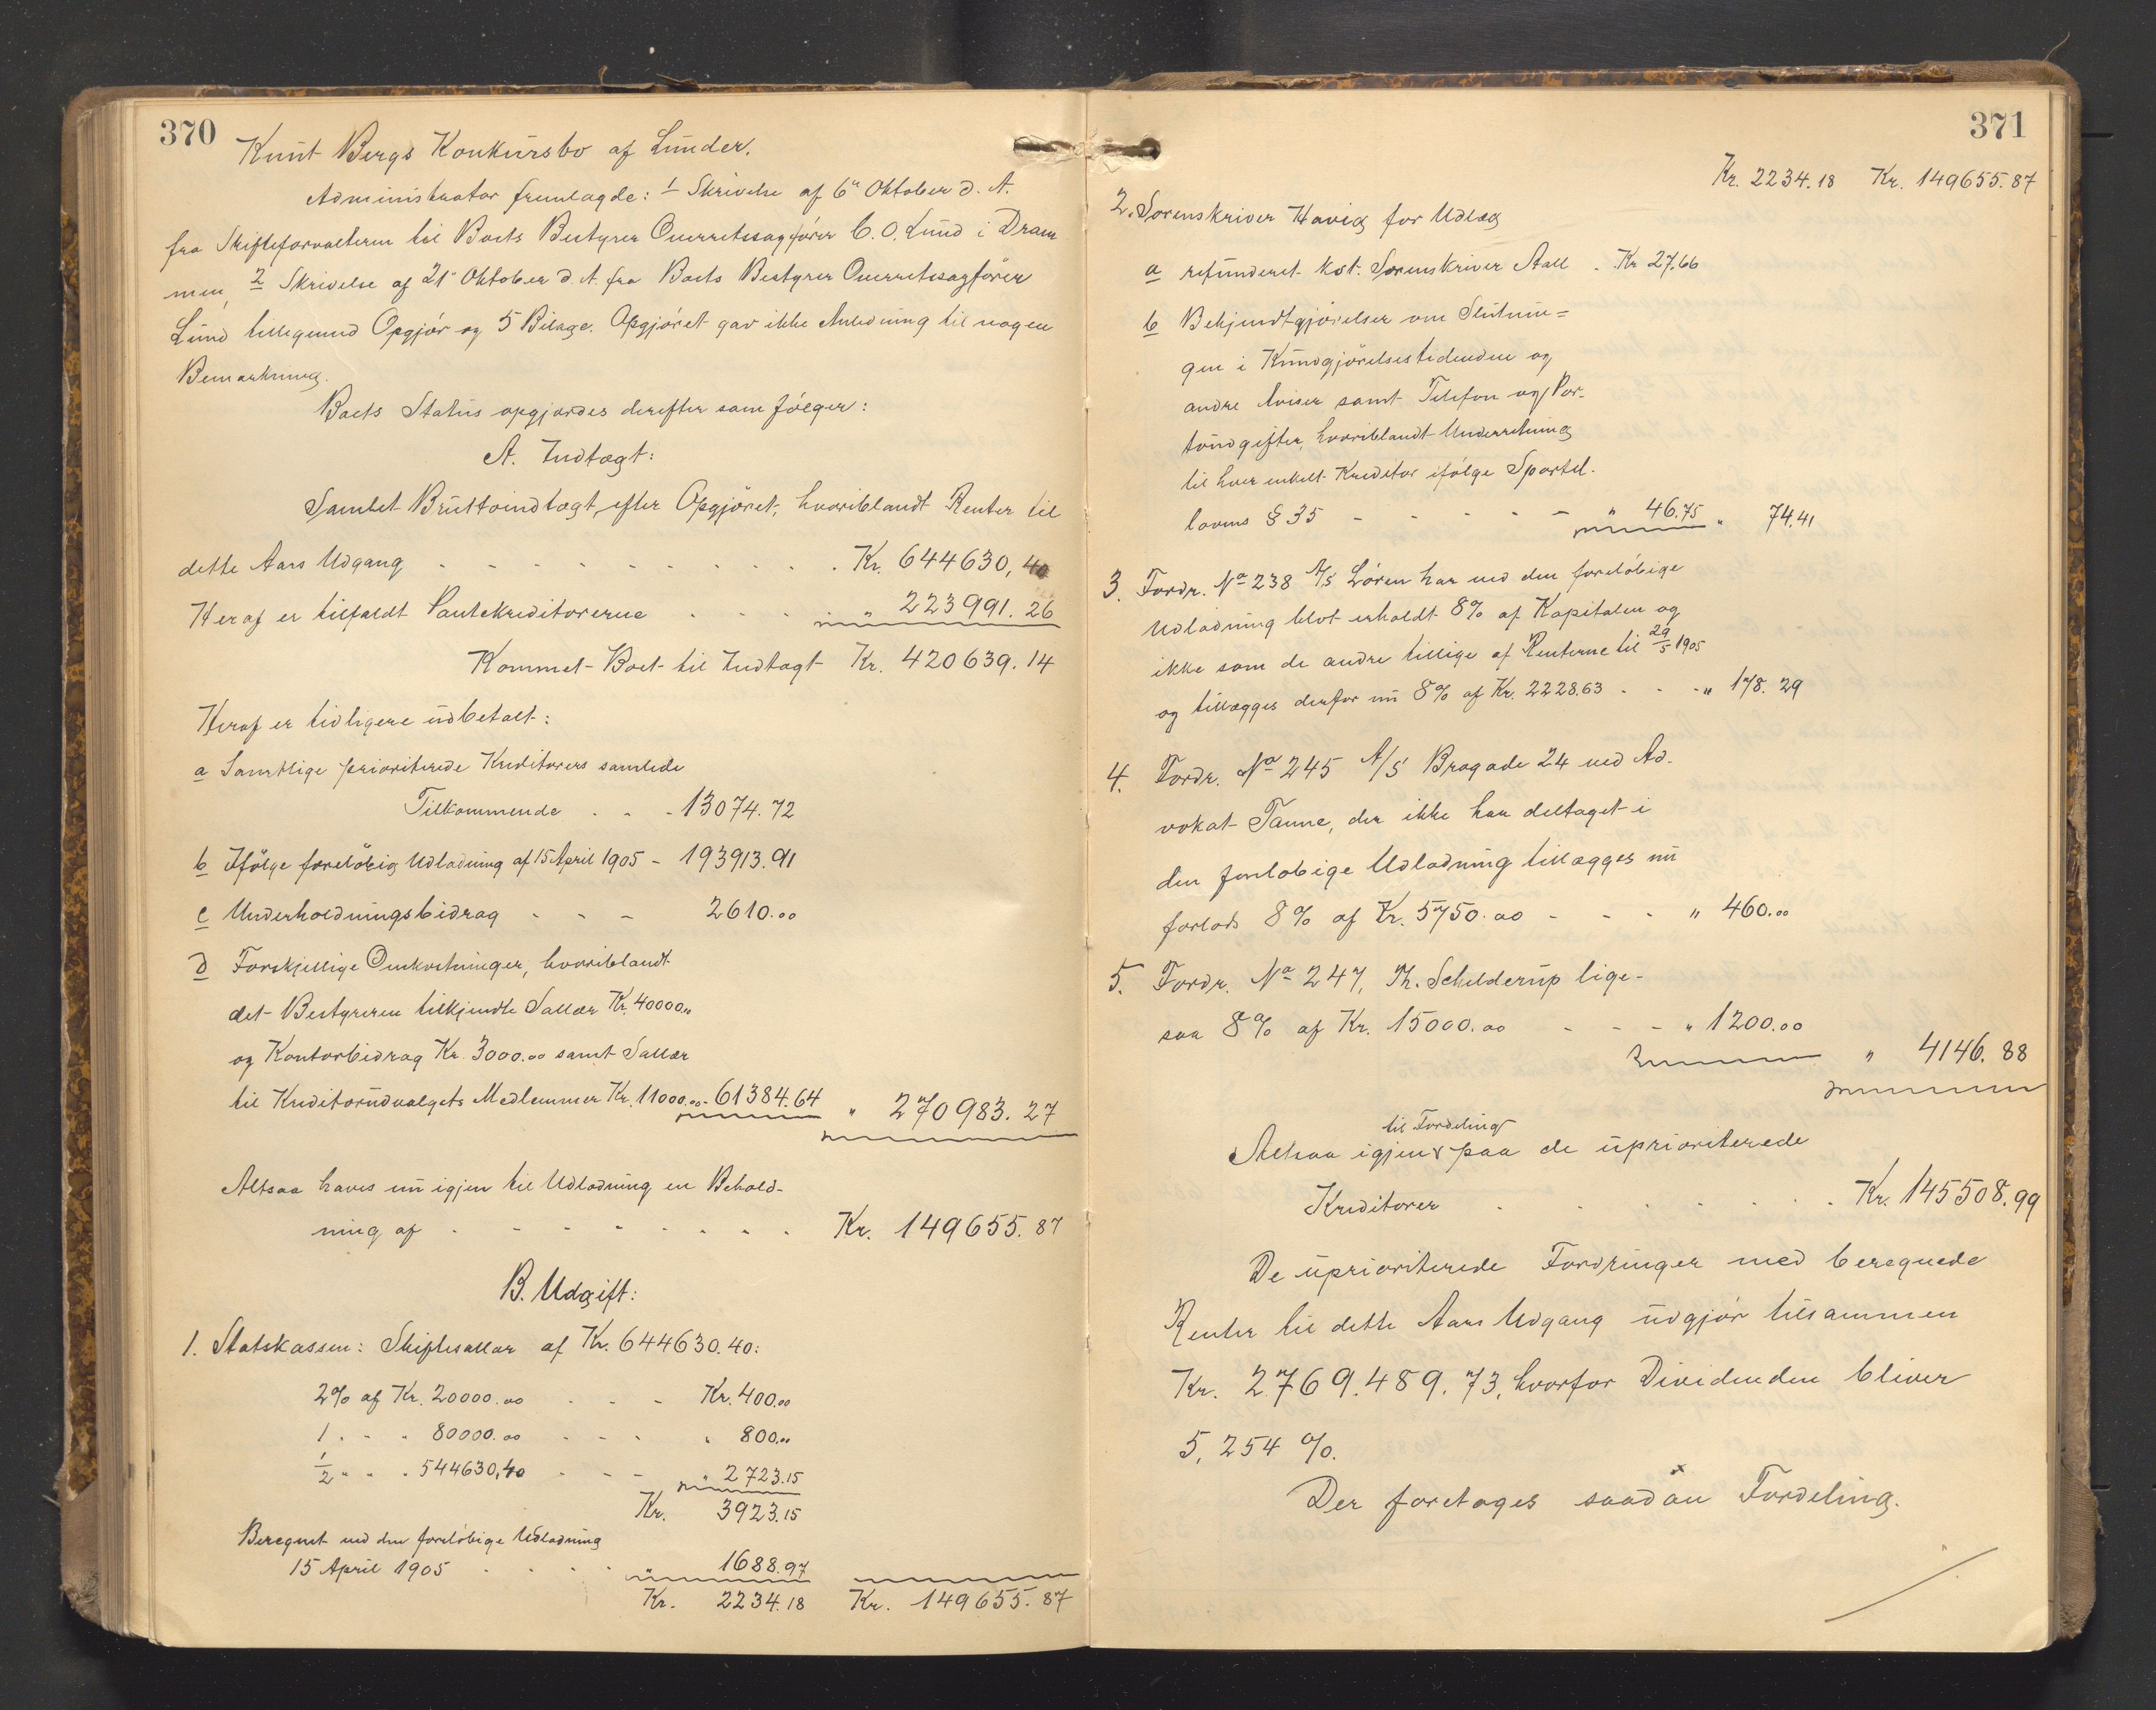 370
Knut Bergs Konkursbo af Lunder.
Administrator fremlagde: 1 Skrivelse af 6te Oktober d. A.
fra Skifteforvalteren til Boets Bestyrer Overretssagfører C. O. Lund i Dram
men, 2 Skrivelse af 21 Oktober d. A. fra Boets Bestyrer Overretssagfører
Lund tillegemed Opgjør og 5 Bilage. Opgjøret gav ikke Anledning til nogen
Bemærkning.
Boets Status opgjordes derefter som følger:
A. Indtægt:
Samlet Bruttoindtægt efter Opgjøret, hvoriblandt Renter til
dette Aars Udgang - - - - - - Kr. 644630,40
Heraf er tilfaldt Pantekreditorerne - - - " 223991.26
Kommet Boet til Indtægt Kr. 420639.14
Heraf er tidligere udbetalt:
a Samtlige prioriterede Kreditorers samlede
Tilkommende - - - 13074.72
b Ifølge foreløbig Udlodning af 15 April 1905 - 193913.91
c Underholdningsbidrag - - - 2610.00
d Forskjellige Omkostninger, hvoriblandt
det Bestyreren tilkjendte Sallær Kr. 40000.00
og Kontorbidrag Kr. 3000.00 samt Sallær
til Kreditorudvalgets Medlemmer Kr. 11000.00 - 61384.64 " 270983.27
Altsaa haves nu igjen til Udlodning en Behold-
ning af - - - - - - - Kr. 149655.87
B. Udgift:
1. Statskassen: Skiftesallær af Kr. 644630.40:
2% af Kr. 20000.00 - - - Kr. 400.00
1 " " " 80000.00 - - - " 800.00
1/2 " " " 544630,40 - - - " 2723.15
Kr. 3923.15
Beregnet ved den foreløbige Udlodning
15 April 1905 - - - - " 1688.97
Kr. 2234.18 Kr. 149655.87
371
Kr. 2234.18 Kr. 149655.87
2. Sorenskriver Havig for Udlæg
a refunderet kst. Sorenskriver Aall - Kr 27.66
b Bekjendtgjørelser om Slutnin=
gen i Kundgjørelsestidenden og
andre Aviser samt Telefon og Por-
toudgifter, hvoriblandt Underretning
til hver enkelt Kreditor ifølge Sportel-
lovens § 35 - - - - - " 46.75 " 74.41
3. Fordr. No 238 A/S Løren har ved den foreløbige
Udlodning blot erholdt 8% af Kapitalen og
ikke som de andre tillige af Renterne til 29/5 1905
og tillægges derfor nu 8% af Kr. 2228.63 - - - " 178.29
4. Fordr. No 245 A/S Bragade 24 ved Ad-
vokat Tanne, der ikke har deltaget i
den foreløbige Udlodning tillægges nu
forlods 8% af Kr. 5750.00 - - - " 460.00
5. Fordr. No 247, Th. Schelderup lige-
saa 8% af Kr. 15000.00 - - - " 1200.00
" 4146.88
til Fordeling
Altsaa igjen paa de uprioriterede
Kreditorer - - - - - Kr. 145508.99
De uprioriterede Fordringer med beregnede
Renter til dette Aars Udgang udgjør tilsammen
Kr. 2.769.489.73, hvorfor Dividenden bliver
5,254 %.
Der foretages saadan Fordeling.